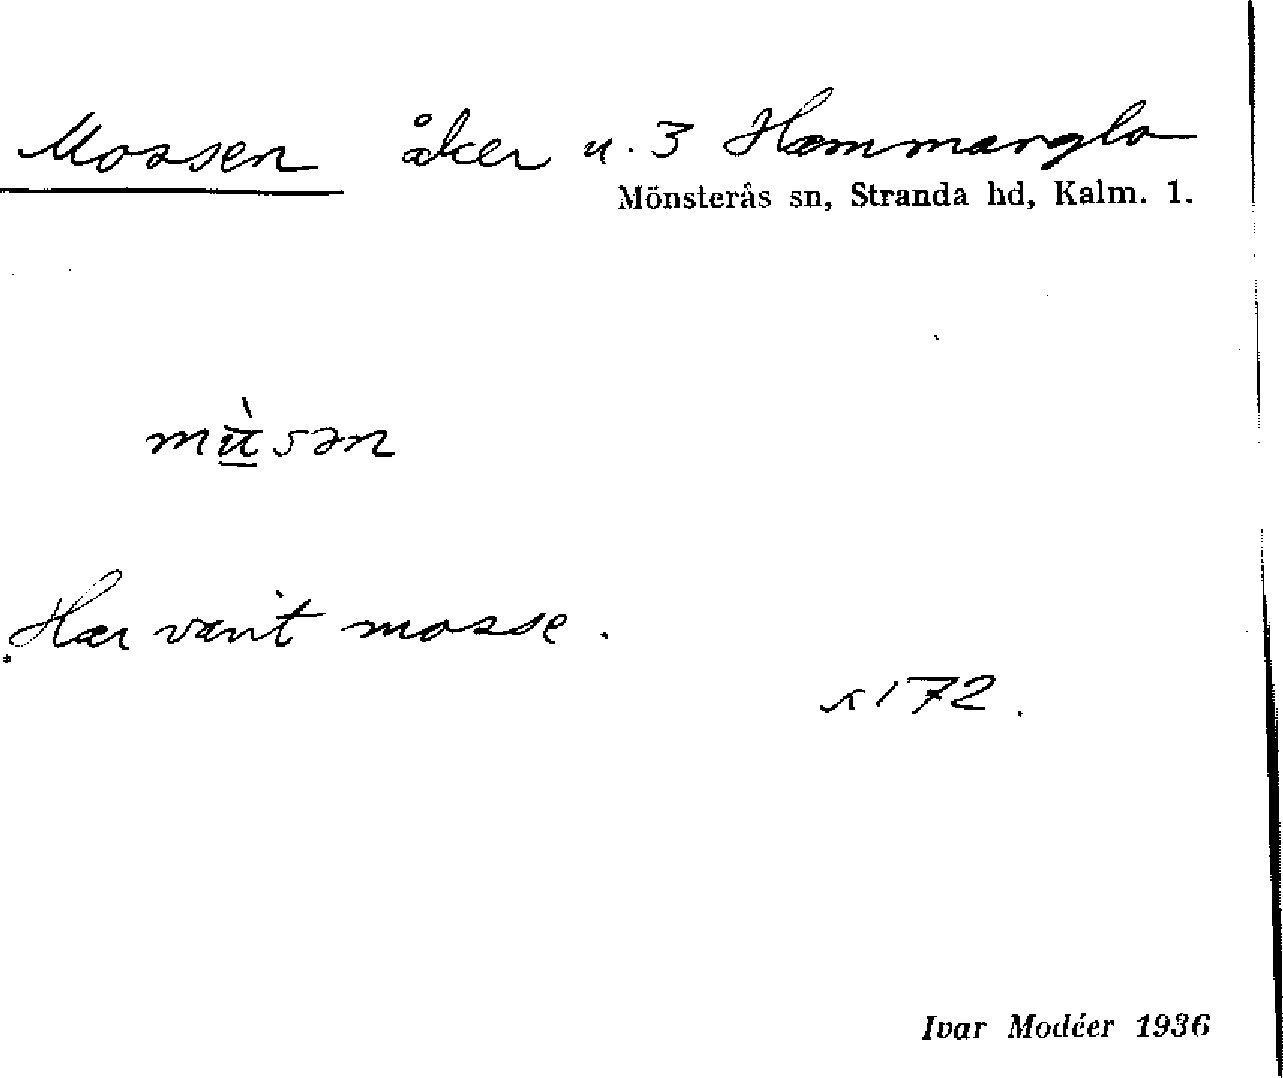 Mossen åker u. 3 Hammarglo
Mönsterås sn, Stranda hd, Kalm. l.
Har varit mosse.
172.
Ivar Modéer 1936